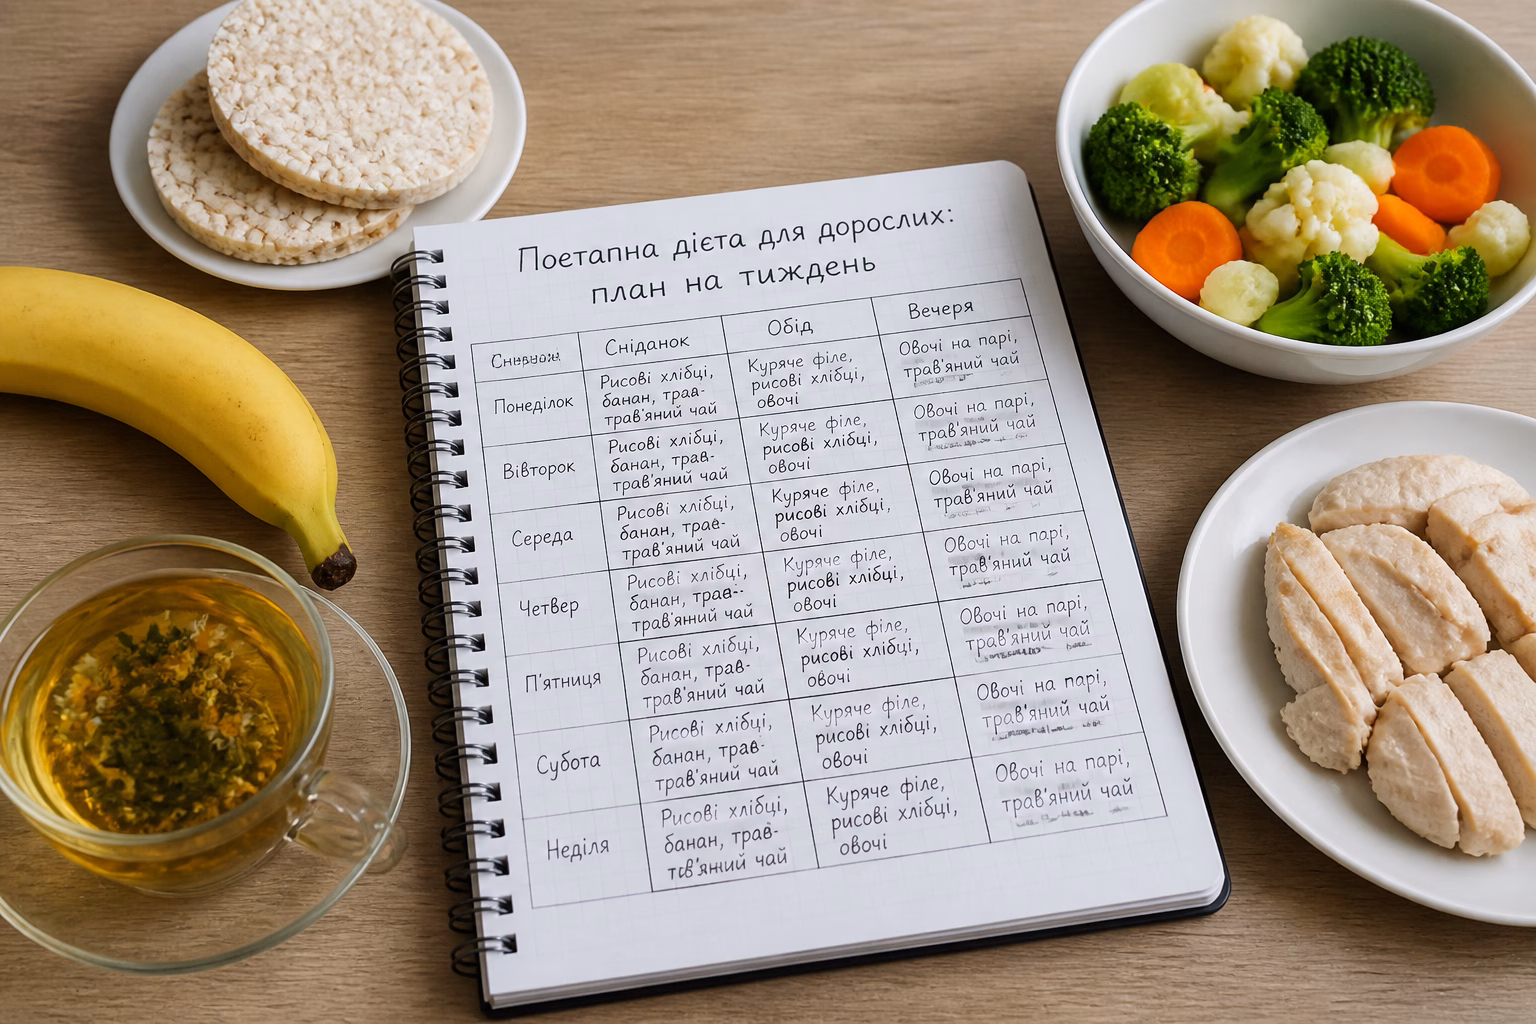 Поетапна дієта для дорослих:
план на тиждень
Сніданок
Обід
Вечеря
Понеділок
Рисові хлібці,
банан, трав-
трав'яний чай
Куряче філе,
рисові хлібці,
овочі
Овочі на парі,
трав'яний чай
Вівторок
Рисові хлібці,
банан, трав-
трав'яний чай
Куряче філе,
рисові хлібці,
овочі
Овочі на парі,
трав'яний чай
Середа
Рисові хлібці,
банан, трав-
трав'яний чай
Куряче філе,
рисові хлібці,
овочі
Овочі на парі,
трав'яний чай
Четвер
Рисові хлібці,
банан, трав--
трав'яний чай
Куряче філе,
рисові хлібці,
овочі
Овочі на парі,
трав'яний чай
П'ятниця
Рисові хлібці,
банан, трав-
трав'яний чай
Куряче філе,
рисові хлібці,
овочі
Овочі на парі,
трав'яний чай
Субота
Рисові хлібці,
банан, трав-
трав'яний чай
Куряче філе,
рисові хлібці,
овочі
Овочі на парі,
трав'яний чай
Неділя
Рисові хлібці,
банан, трав-
чай
Куряче філе,
рисові хлібці,
овочі
Овочі на парі,
трав'яний чай